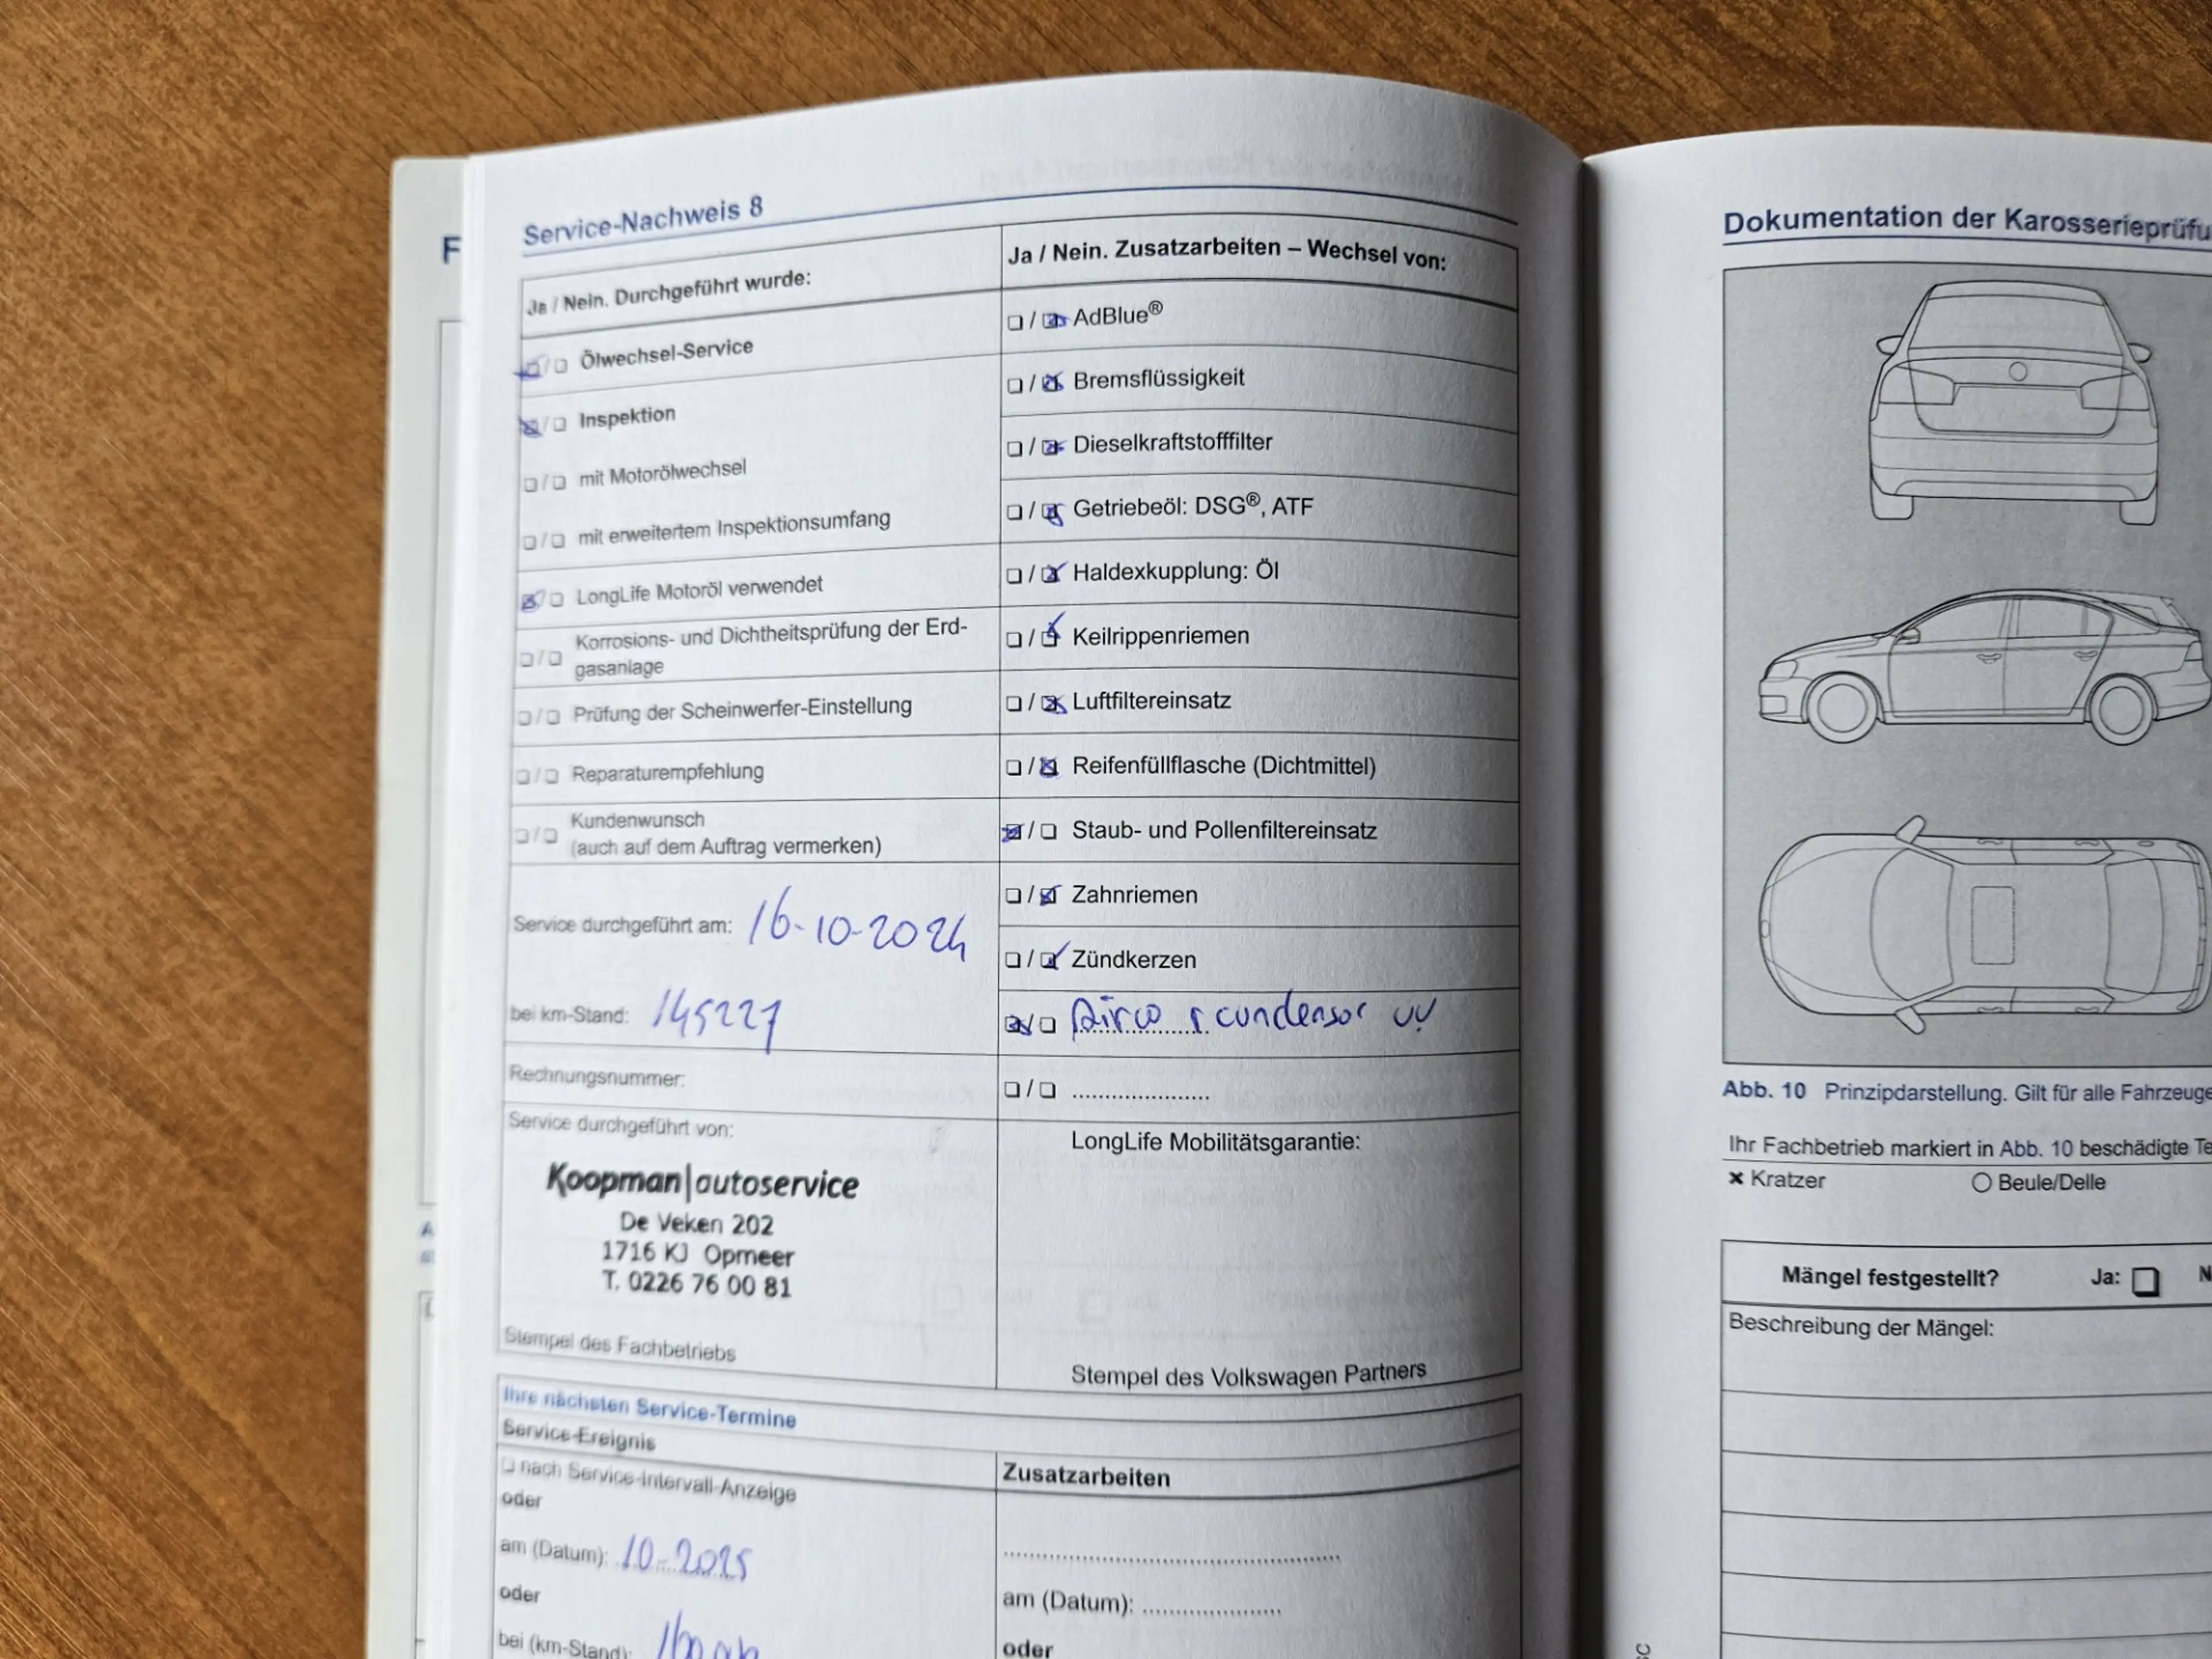 Service-Nachweis 8
Ja / Nein. Durchgeführt wurde:
Ölwechsel-Service
Inspektion
mit Motorölwechsel
mit erweitertem Inspektionsumfang
LongLife Motoröl verwendet
Korrosions- und Dichtheitsprüfung der Erd-
gasanlage
Prüfung der Scheinwerfer-Einstellung
Reparaturempfehlung
Kundenwunsch
(auch auf dem Auftrag vermerken)
Service durchgeführt am: 16-10-2024
bei km-Stand: 145227
Rechnungsnummer:
Service durchgeführt von:
Koopman|autoservice
De Veken 202
1716 KJ Opmeer
T. 0226 76 00 81
Stempel des Fachbetriebs
Ja / Nein. Zusatzarbeiten – Wechsel von:
AdBlue®
Bremsflüssigkeit
Dieselkraftstofffilter
Getriebeöl: DSG®, ATF
Haldexkupplung: Öl
Keilrippenriemen
Luftfiltereinsatz
Reifenfüllflasche (Dichtmittel)
Staub- und Pollenfiltereinsatz
Zahnriemen
Zündkerzen
Airco condensor
LongLife Mobilitätsgarantie:
Stempel des Volkswagen Partners
Ihre nächsten Service-Termine
Service-Ereignis
nach Service-Intervall-Anzeige
oder
am (Datum): 10-2025
oder
bei (km-Stand):
Zusatzarbeiten
am (Datum):
oder
Dokumentation der
Abb. 10 Prinzipdarstellung. Gilt für alle
Ihr Fachbetrieb markiert in Abb. 10 beschädigte
× Kratzer
Beule/Delle
Mängel festgestellt? Ja:
Beschreibung der Mängel: